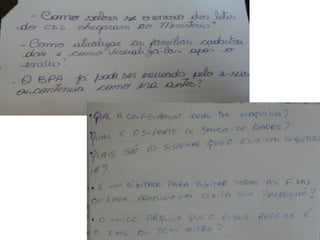 - Como saber se o envio dos lotes
do CDS chegaram ao Ministério?
- Como atualizar as famílias cadastra
das e como visualizá-las após o
envio?
- O BPA já pode ser enviado pelo e-sus
ou continua como era antes?
• QUAL A CONFIGURAÇÃO IDEAL DA MAQUINA?
QUAL É O SUPORTE DE BANCO DE DADOS?
QUAIS SÃO OS SISTEMAS QUE O ESUS VAI SUBSTITU
IR?
• É UM DIGITADO PARA DIGITAR TODAS AS FIXAS
OU CADA PROFISSIONAL DIGITA SUA PRODUÇÃO?
• O UNICO ARQUIVO QUE O ESUS RECEBE É
O XML OU TEM OUTRO?